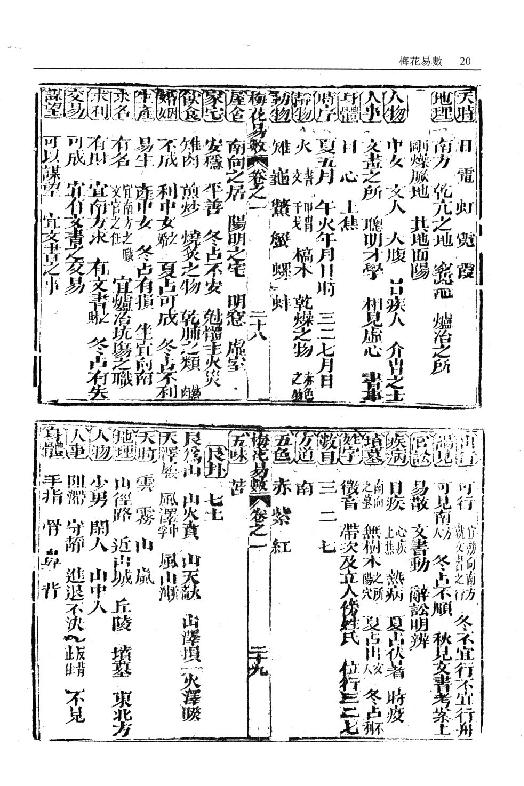 梅花易數 20
天時 日 電 虹 霓 霞
地理 南方 乾亢之地 窰 爐冶之所
剛燥厥地 其地面陽
人物 中女 文人 大腹 目疾人 介冑之士
人事 文畫之所 聰明才學 相見虛心 書事
身體 目 心 上焦
時序 夏五月 午火年月日時 三二七月日
靜物 火 書 文 甲冑 干戈 槁木 乾燥之物 赤色之物
動物 雉 龜 鱉 蟹 螺 蚌
梅花易數 卷之一 二十八
屋舍 南向之居 陽明之宅 明窓 虛室
家宅 安穩 平善 冬占不安 尅體主火災
飲食 雉肉 煎炒 燒炙之物 乾脯之類 熱肉
婚姻 不成 利中女婚 夏占可成 冬占不利
生產 易生 產中女 冬占有損 坐宜向南
求名 有名 宜南方之職 文官之任 宜爐冶坑場之職
求利 有財 宜南方求 有文書財 冬占有失
交易 可成 宜有文書之交易
謀望 可以謀望 宜文書之事
出行 可行 宜動向南方 就文書之行 冬不宜行 不宜行舟
謁見 可見南方人 冬占不順 秋見文書考案士
官訟 易散 文書動 辭訟明辨
疾病 目疾 心疾 上焦 熱病 夏占伏暑 時疫
墳墓 南向之墓 無樹木 陽穴 夏占出文人 冬占不
姓字 徵音 帶次及立人傍姓氏 位行三二七
數目 三 二 七
方道 南
五色 赤 紫 紅
梅花易數 卷之一 二十九
五味 苦
艮卦 七 土
艮爲山 山火賁 山天大畜 山澤損 火澤睽
天澤履 風澤中孚 風山漸
天時 雲 霧 山嵐
地理 山徑路 近古城 丘陵 墳墓 東北方
人物 少男 閒人 山中人
人事 阻滯 守靜 進退不決 反背 止住 不見
身體 手指 骨 鼻 背